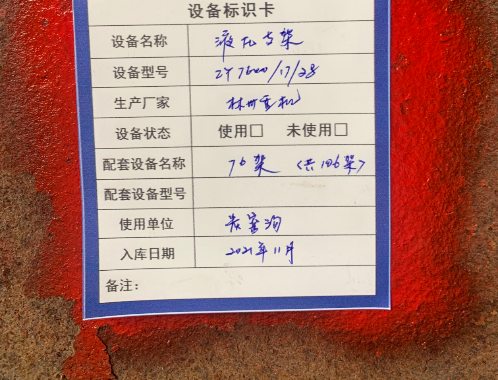 设备标识卡
设备名称 液压支架
设备型号 ZY7600/17/38
生产厂家 林州重机
设备状态 使用□ 未使用□
配套设备名称 76架 (共106架)
配套设备型号
使用单位
入库日期 2021年11月
备注：